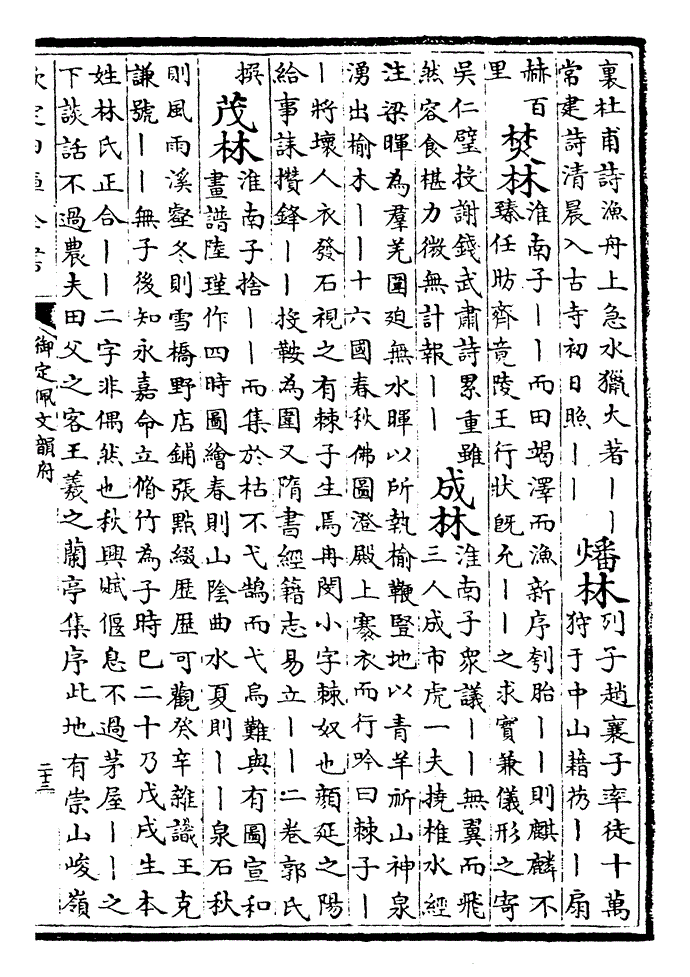 裏杜甫詩漁舟上急水獵火著丨丨
常建詩清晨入古寺初日照丨丨
燔林
列子趙襄子率徒十萬
狩于中山藉芿丨丨扇
赫百
里
焚林
淮南子丨丨而田竭澤而漁新序刳胎丨丨則麒麟不
臻任昉齊竟陵王行狀旣允丨丨之求實兼儀形之寄
吳仁璧投謝錢武肅詩累重雖
然容食椹力微無計報丨丨
成林
淮南子衆議丨丨無翼而飛
三人成市虎一夫撓椎水經
注梁暉為羣羌圍廹無水暉以所執榆鞭豎地以青羊祈山神泉
湧出榆木丨丨十六國春秋佛圖澄殿上褰衣而行吟曰棘子丨
丨將壞人衣發石視之有棘子生焉冉閔小字棘奴也顔延之陽
給事誄攢鋒丨丨投鞍為圍又隋書經籍志易立丨丨二卷郭氏
撰
茂林
淮南子捨丨丨而集於枯不弋鵠而弋烏難與有圖宣和
畫譜陸瑾作四時圖繪春則山陰曲水夏則丨丨泉石秋
則風雨溪壑冬則雪橋野店鋪張點綴歷歷可觀癸辛雜識王克
謙號丨丨無子後知永嘉命立脩竹為子時巳二十乃戊戌生本
姓林氏正合丨丨二字非偶然也秋興賦偃息不過茅屋丨丨之
下談話不過農夫田父之客王羲之蘭亭集序此地有崇山峻嶺
欽定四庫全書
御定佩文韻府
二十三